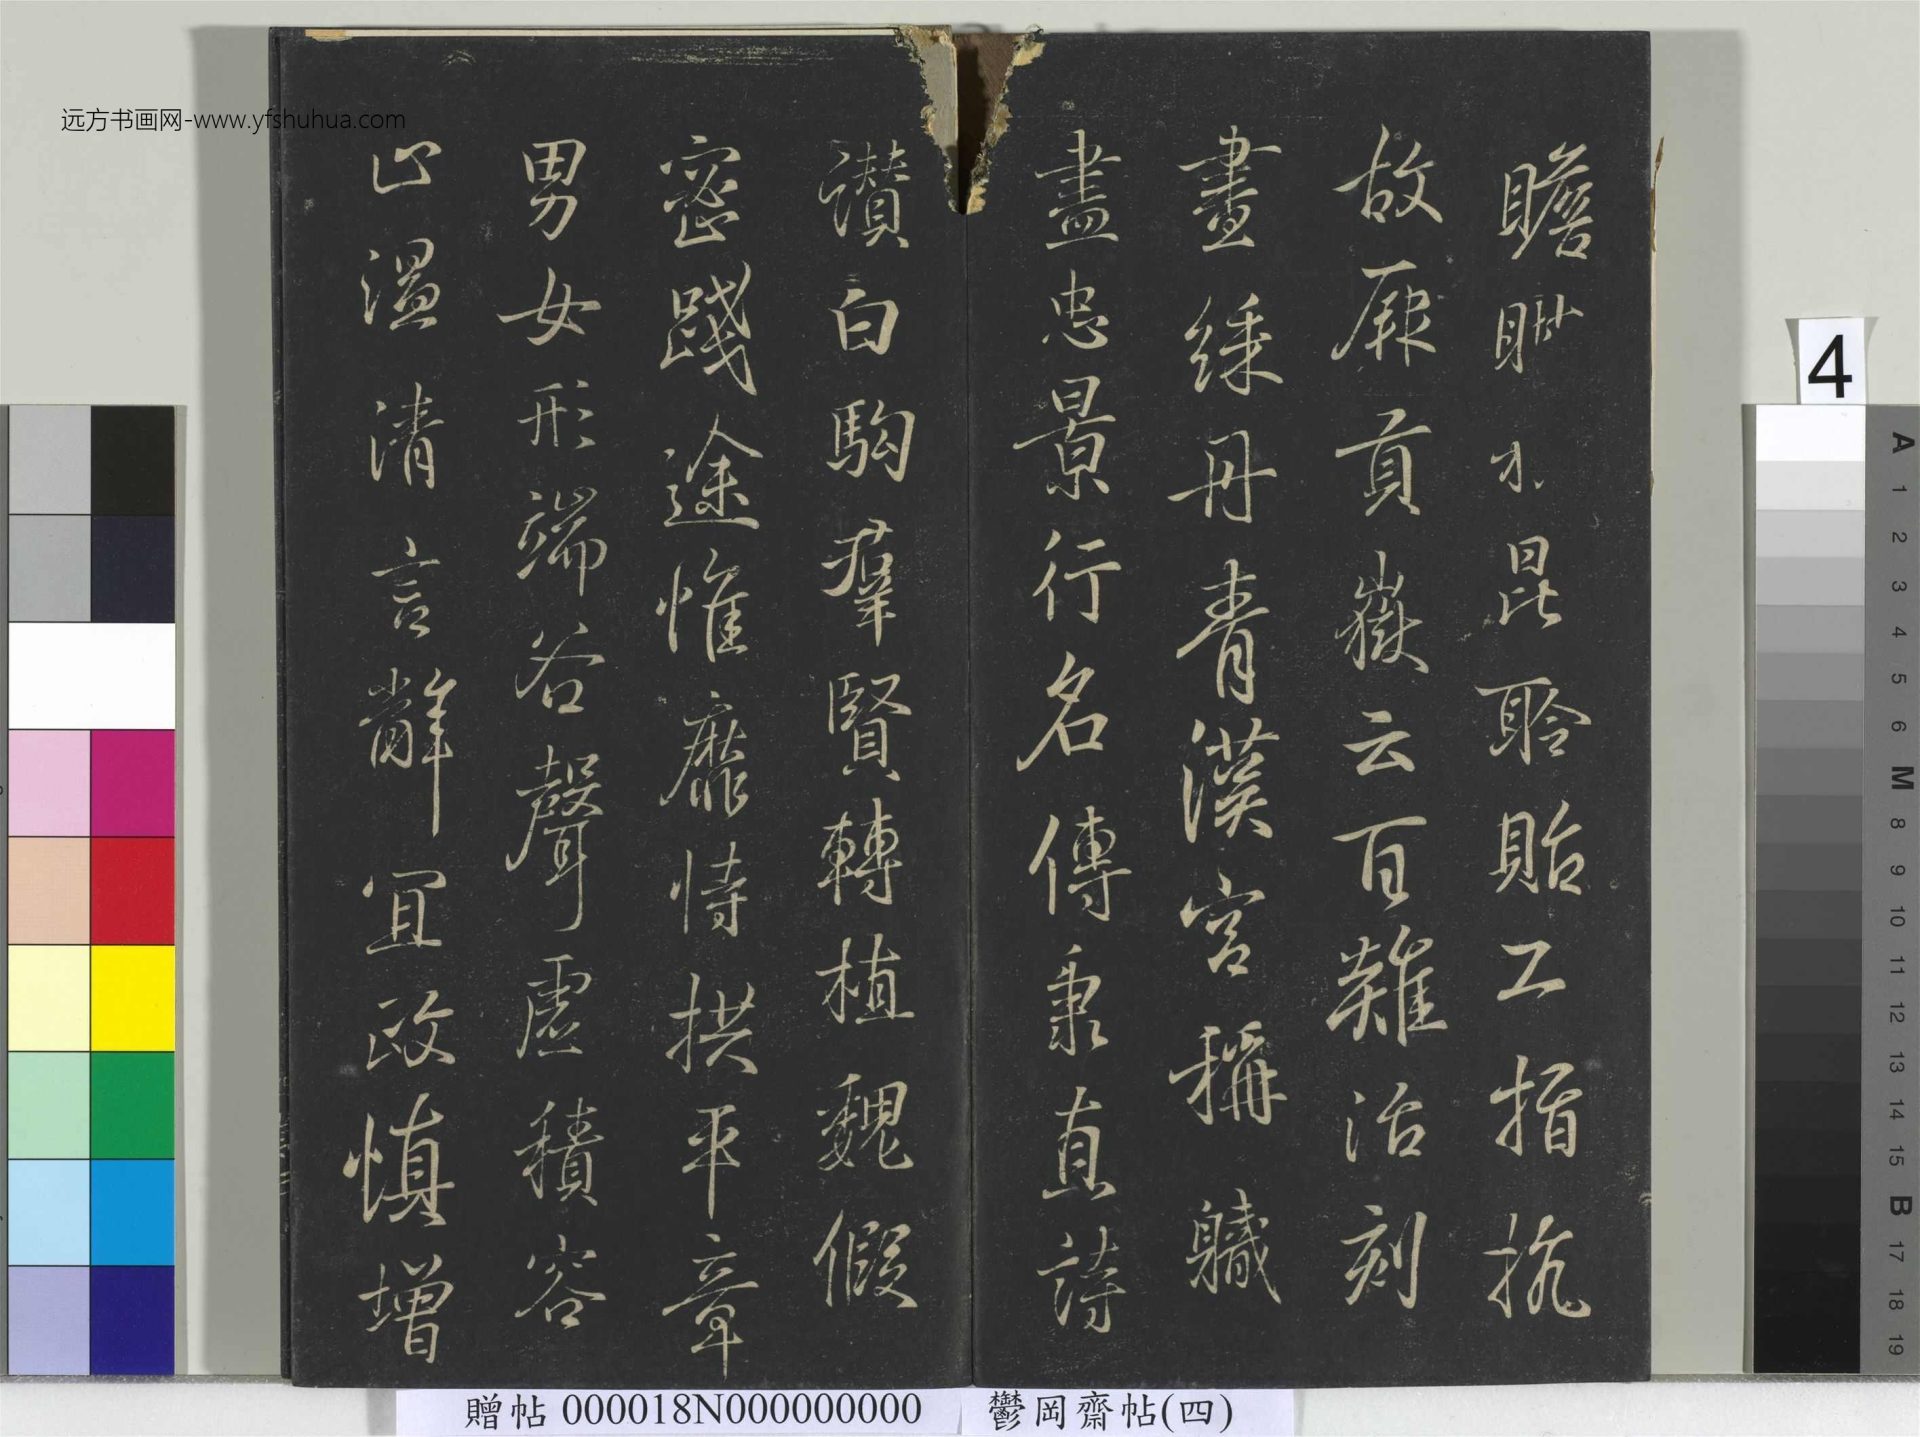 瞻眺水昆聆貽工指執
故厥貢嶽云百難治刻
畫綵丹青漢宮稱職
盡忠景行名傳秉直詩
讚白駒羣賢轉植魏假
密踐途惟靡恃拱平章
男女形端谷聲虛積容
止溫清言辭宜政慎增
远方书画网-www.yfshuhua.com
贈帖 000018N000000000
鬱岡齋帖(四)
4
A
1
2
3
4
5
6
M
8
9
10
11
12
13
14
15
B
17
18
19